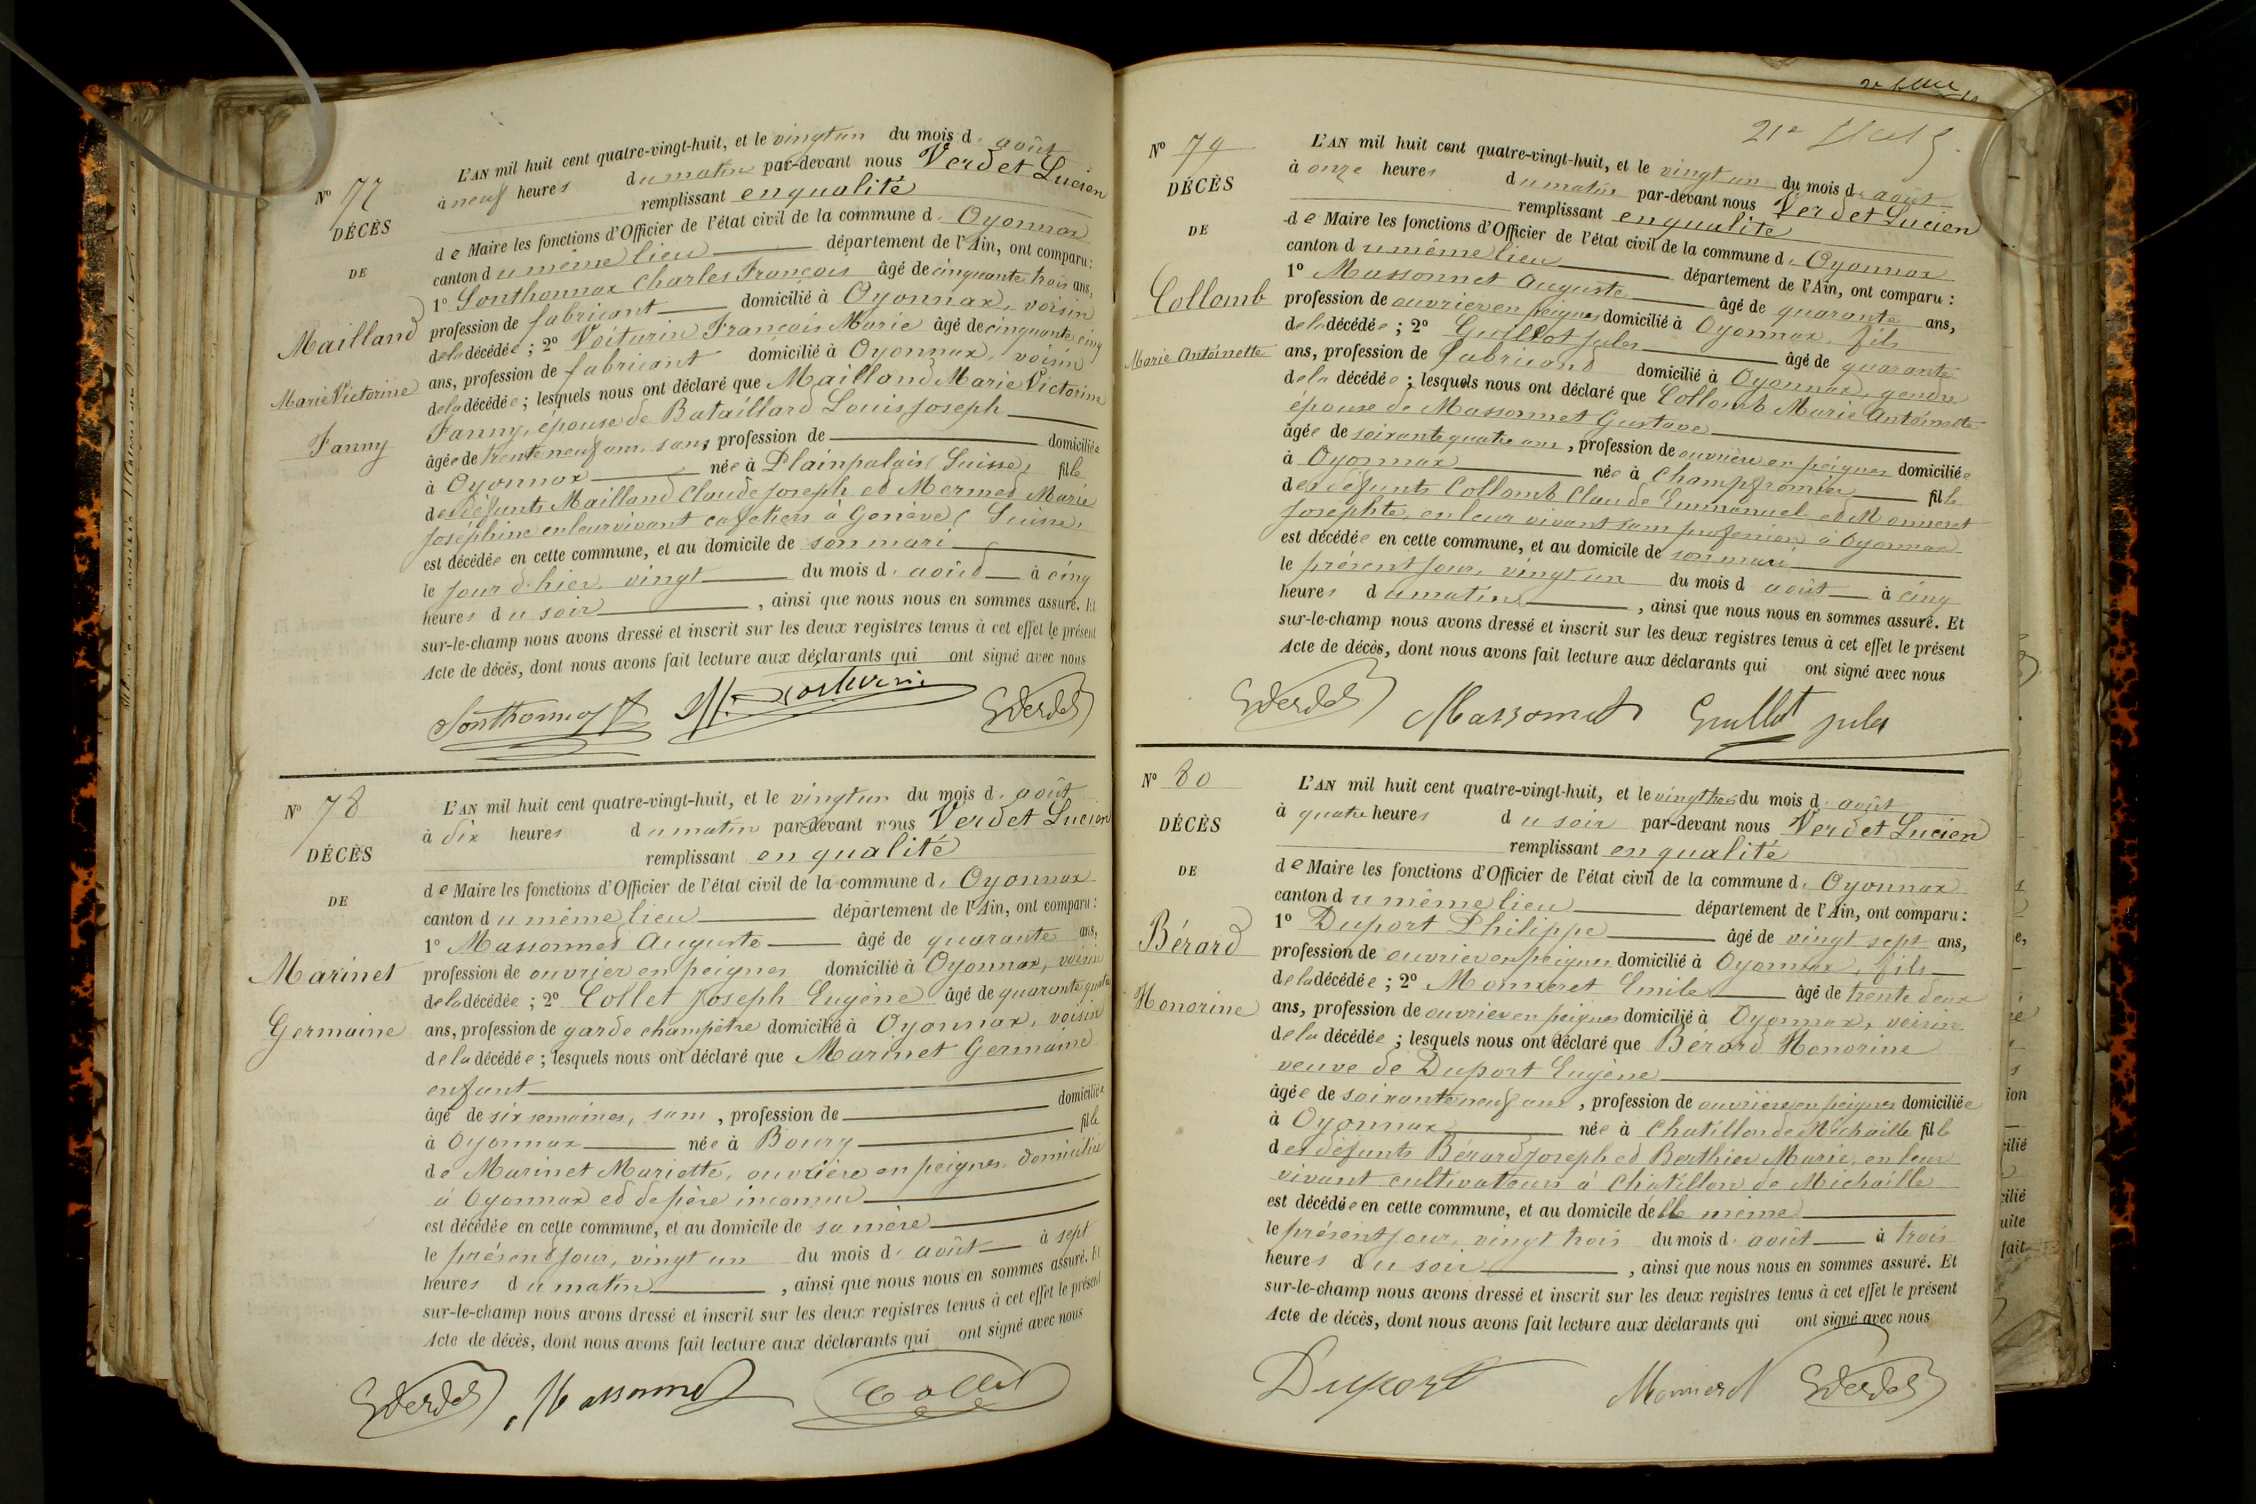 N° 77
DÉCÈS
DE
Mailland
Marie Victorine
Fanny
L'AN mil huit cent quatre-vingt-huit, et le vingt un du mois d. août
à neuf heures du matin par-devant nous Verdet Lucien
remplissant en qualité
de Maire les fonctions d'Officier de l'état civil de la commune d. Oyonnax
canton du même lieu département de l'Ain, ont comparu :
1° Sonthonnax Charles François âgé de cinquante trois ans,
profession de fabricant domicilié à Oyonnax, voisin
de la décédée ; 2° Voiturin François Marie âgé de cinquante cinq
ans, profession de fabricant domicilié à Oyonnax, voisin
de la décédée ; lesquels nous ont déclaré que Mailland Marie Victorine
Fanny, épouse de Bataillard Louis Joseph
âgée de trente neuf ans, sans, profession de domiciliée
à Oyonnax née à Plainpalais (Suisse) fille
des défunts Mailland Claude Joseph et Mermet Marie
Joséphine en leur vivant cafetiers à Genève (Suisse)
est décédée en cette commune, et au domicile de son mari
le jour d'hier, vingt du mois d. août à cinq
heures du soir, ainsi que nous nous en sommes assuré. Et
sur-le-champ nous avons dressé et inscrit sur les deux registres tenus à cet effet le présent
Acte de décès, dont nous avons fait lecture aux déclarants qui ont signé avec nous
Sonthonnax Verdet
N° 78
DÉCÈS
DE
Marinet
Germaine
L'AN mil huit cent quatre-vingt-huit, et le vingt un du mois d. août
à dix heures du matin par-devant nous Verdet Lucien
remplissant en qualité
de Maire les fonctions d'Officier de l'état civil de la commune d. Oyonnax
canton du même lieu département de l'Ain, ont comparu :
1° Massonnet Auguste âgé de quarante ans,
profession de ouvrier en peignes domicilié à Oyonnax, voisin
de la décédée ; 2° Collet Joseph Eugène âgé de quarante quatre
ans, profession de garde champêtre domicilié à Oyonnax, voisin
de la décédée ; lesquels nous ont déclaré que Marinet Germaine
enfant
âgé de six semaines, sans, profession de domiciliée
à Oyonnax née à Bourg fille
de Marinet Mariette, ouvrière en peignes, domiciliée
à Oyonnax et de père inconnu
est décédée en cette commune, et au domicile de sa mère
le présent jour, vingt un du mois d. août à sept
heures du matin, ainsi que nous nous en sommes assuré. Et
sur-le-champ nous avons dressé et inscrit sur les deux registres tenus à cet effet le présent
Acte de décès, dont nous avons fait lecture aux déclarants qui ont signé avec nous
Verdet Massonnet Collet
N° 79
DÉCÈS
DE
Collomb
Marie Antoinette
L'AN mil huit cent quatre-vingt-huit, et le vingt un du mois d. août
à onze heures du matin par-devant nous Verdet Lucien
remplissant en qualité
de Maire les fonctions d'Officier de l'état civil de la commune d. Oyonnax
canton du même lieu département de l'Ain, ont comparu :
1° Massonnet Auguste âgé de quarante ans,
profession de ouvrier en peignes domicilié à Oyonnax, fils
de la décédée ; 2° Guillot Jules âgé de quarante
ans, profession de fabricant domicilié à Oyonnax, gendre
de la décédée ; lesquels nous ont déclaré que Collomb Marie Antoinette
épouse de Massonnet Gustave
âgée de soixante quatre ans, profession de ouvrière en peignes domiciliée
à Oyonnax née à Champfromier fille
des défunts Collomb Claude Emmanuel et Monneret
Josephte, en leur vivant sans profession à Oyonnax
est décédée en cette commune, et au domicile de son mari
le présent jour, vingt un du mois d août à cinq
heures du matin, ainsi que nous nous en sommes assuré. Et
sur-le-champ nous avons dressé et inscrit sur les deux registres tenus à cet effet le présent
Acte de décès, dont nous avons fait lecture aux déclarants qui ont signé avec nous
Verdet Massonnet Guillot Jules
N° 80
DÉCÈS
DE
Bérard
Honorine
L'AN mil huit cent quatre-vingt-huit, et le vingt trois du mois d. août
à quatre heures du soir par-devant nous Verdet Lucien
remplissant en qualité
de Maire les fonctions d'Officier de l'état civil de la commune d. Oyonnax
canton du même lieu département de l'Ain, ont comparu :
1° Duport Philippe âgé de vingt sept ans,
profession de ouvrier en peignes domicilié à Oyonnax, fils
de la décédée ; 2° Monneret Emile âgé de trente deux
ans, profession de ouvrier en peignes domicilié à Oyonnax, voisin
de la décédée ; lesquels nous ont déclaré que Bérard Honorine
veuve de Duport Eugène
âgée de soixante neuf ans, profession de ouvrière en peignes domiciliée
à Oyonnax née à Chatillon de Michaille fille
des défunts Bérard Joseph et Berthier Marie, en leur
vivant cultivateurs à Chatillon de Michaille
est décédée en cette commune, et au domicile d'elle même
le présent jour, vingt trois du mois d. août à trois
heures du soir, ainsi que nous nous en sommes assuré. Et
sur-le-champ nous avons dressé et inscrit sur les deux registres tenus à cet effet le présent
Acte de décès, dont nous avons fait lecture aux déclarants qui ont signé avec nous
Duport Monneret Verdet